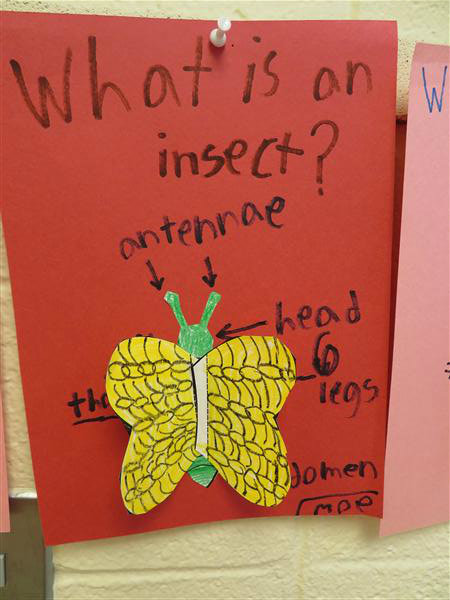 What is an
insect?
antennae
head
6
legs
tho
domen